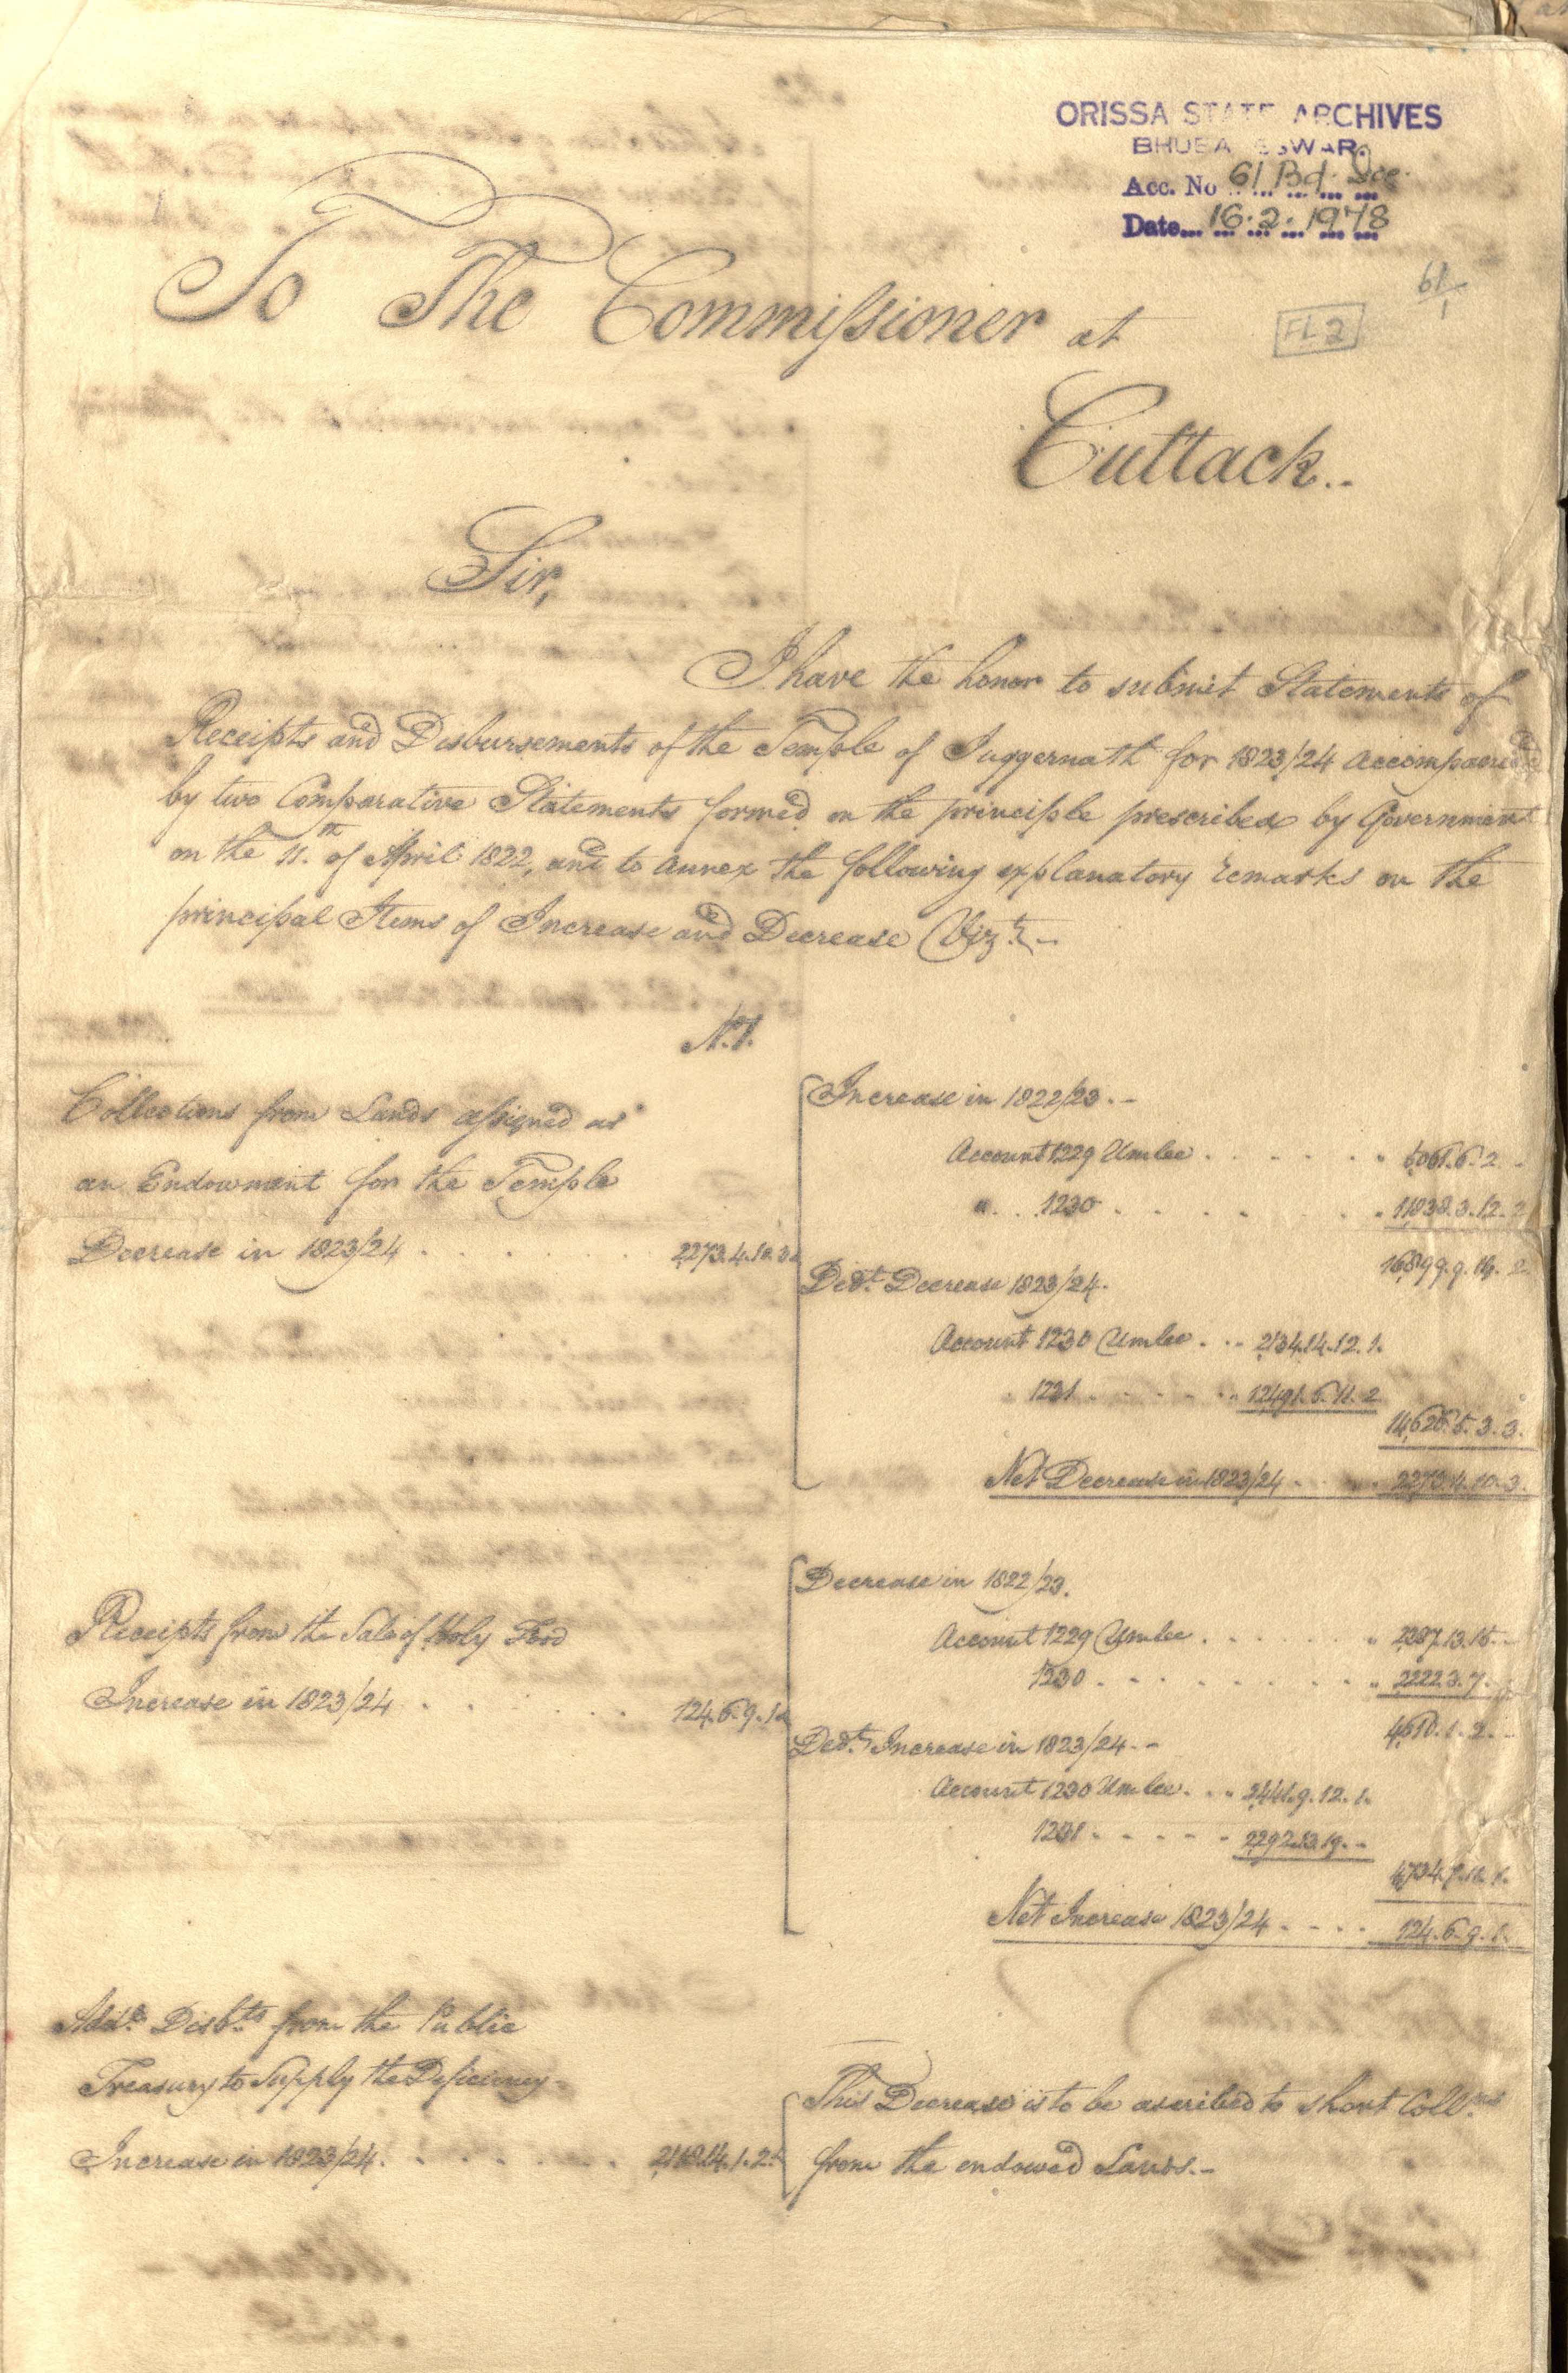 ORISSA STATE ARCHIVES
BHUBANESWAR.
Acc. No 61 Bd. Doc.
Date 16.2.1978
61/1
FL 2
To The Commissioner at
Cuttack..
Sir,
I have the honor to submit Statements of
Receipts and Disbursements of the Temple of Juggernath for 1823/24 accompanied
by two Comparative Statements formed on the principle prescribed by Government
on the 11th of April 1822, and to annex the following explanatory remarks on the
principal Items of Increase and Decrease Vizt.-
N.1.
Collections from Lands assigned as
an Endowment for the Temple
Decrease in 1823/24 . . . . . . 2273.4.10.3
Increase in 1822/23.-
Account 1229 Umlee . . . . . . 5061.6.2.-
" . . 1230 . . . . . . 11838.3.12.2
16899.9.14.2
Dedt. Decrease 1823/24.
Account 1230 Umlee . . . 2134.14.12.1.
1231 . . . . . . 12491.6.11.2
14626.5.3.3.
Net Decrease in 1823/24 . . . 2273.4.10.3.
Receipts from the Sale of Holy Food
Increase in 1823/24 . . . . . . 124.6.9.1
Decrease in 1822/23.
Account 1229 Umlee . . . . . . 2387.13.15.-
1230 . . . . . . 2222.3.7.
4610.1.2.-
Dedt. Increase in 1823/24.-
Account 1230 Umlee . . . 2441.9.12.1.
1231 . . . . . 2292.13.19.-
4734.7.11.1.
Net Increase 1823/24 . . . . 124.6.9.1.
Addl. Disbts. from the Public
Treasury to Supply the Deficiency-
Increase in 1823/24. . . . . . . 2148.14.1.2
This Decrease is to be ascribed to short Collns.
from the endowed Lands.-